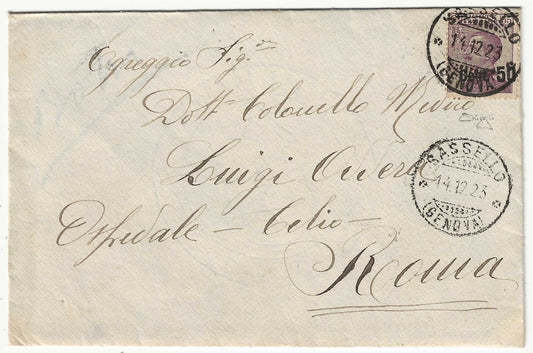 SASSELLO
14.12.23
(GENOVA)
50
Egreggio Sig.r
Dott Colonello Medico
Luigi
Ospedale - Celio -
Roma
SASSELLO
14.12.23
(GENOVA)